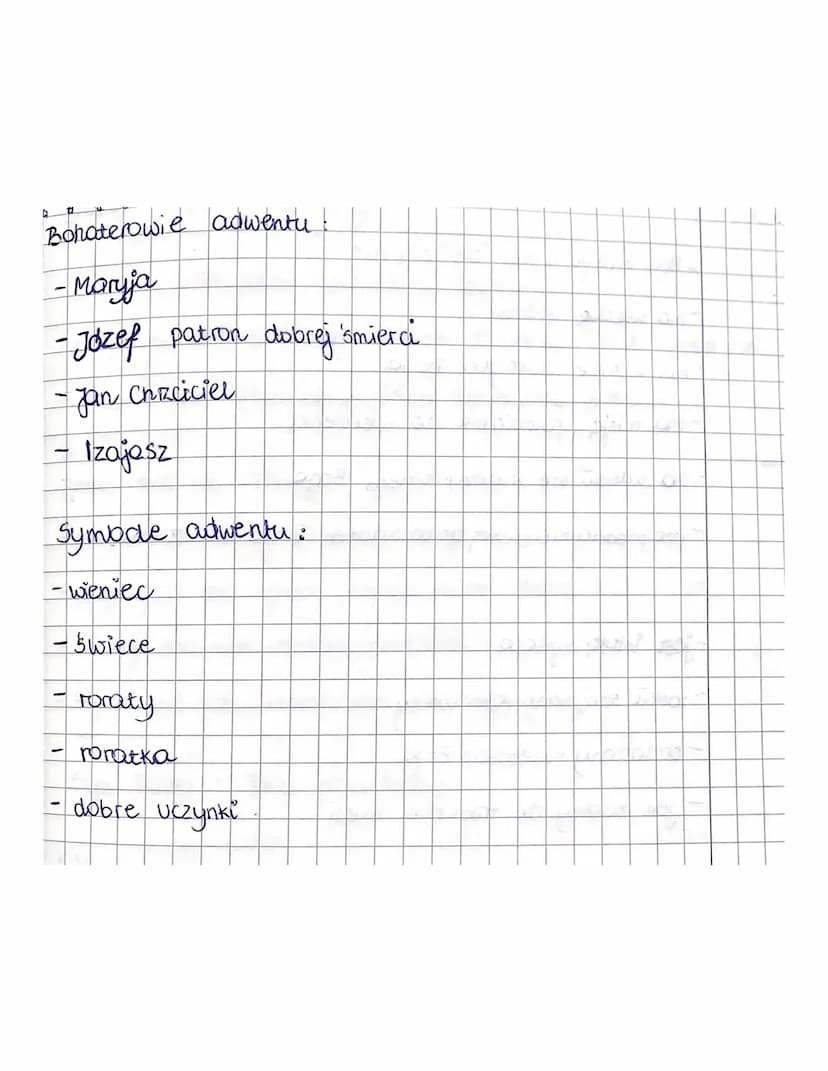 Bohaterowie adwentu:
- Maryja
- Józef patron dobrej śmierci
- Jan Chrzciciel
- Izajasz
Symbole adwentu:
- wieniec
- świece
- roraty
- roratka
- dobre uczynki.